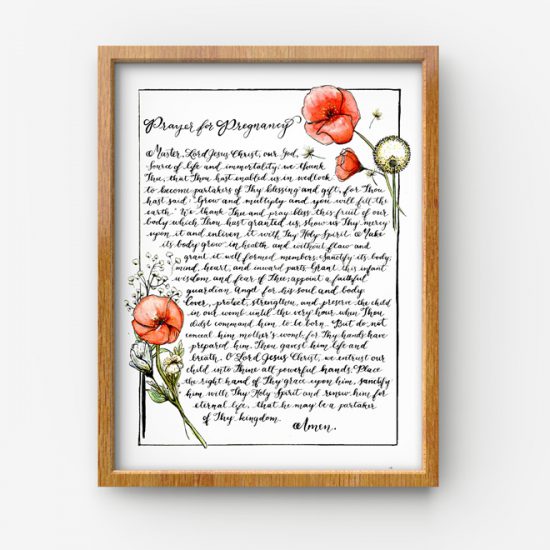 Prayer for Pregnancy
Master, Lord Jesus Christ, our God,
Source of life and immortality, we thank
Thee, that Thou hast enabled us in wedlock
to become partakers of Thy blessing and gift, for Thou
hast said: "Grow and multiply and you will fill the
earth." We thank Thee and pray: bless this fruit of our
body which Thou hast granted us, show us Thy mercy
upon it and enliven it with Thy Holy Spirit. Make
its body grow in health and without flaw and
grant it well formed members. Sanctify its body,
mind, heart, and inward parts. Grant this infant
wisdom and fear of Thee; appoint a faithful
guardian Angel for his soul and body.
Cover, protect, strengthen, and preserve the child
in our womb until the very hour when Thou
didst command him to be born. But do not
conceal him mother's womb for Thy hands have
prepared him, Thou gavest him life and
breath. O Lord Jesus Christ, we entrust our
child into Thine all-powerful hands. Place
the right hand of Thy grace upon him, sanctify
him with Thy Holy Spirit and renew him for
eternal life, that he may be a partaker
of Thy kingdom.
Amen.